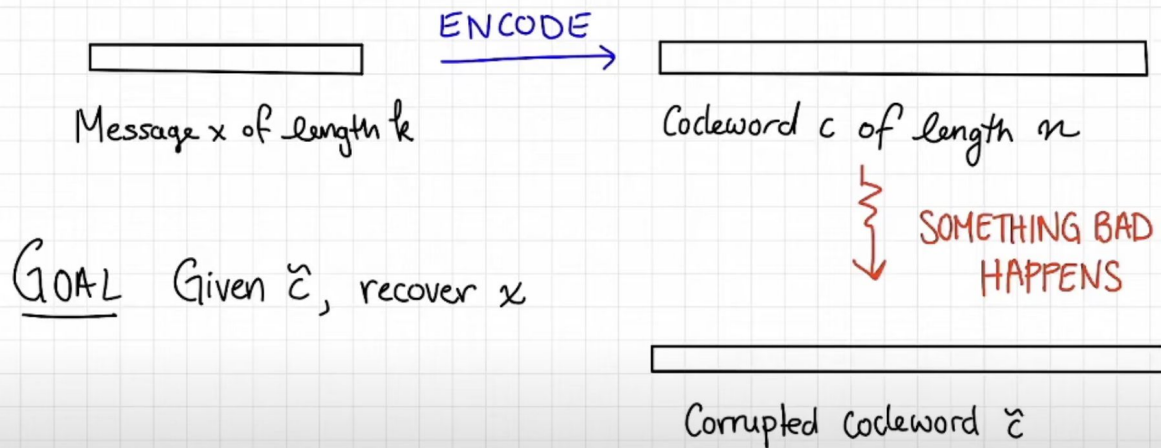 ENCODE
Message x of length k
Codeword c of length n
SOMETHING BAD
HAPPENS
GOAL Given c̃, recover x
Corrupted codeword c̃